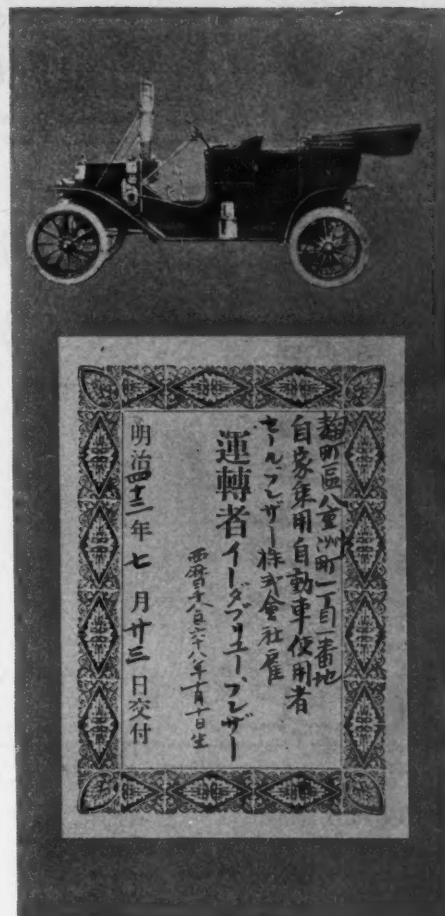 麹町區八重洲町一丁目一番地
自家乗用自動車使用者
セール、フレザー株式會社雇
運轉者イーダブリユーフレザー
西暦千八百六十八年
十日生
明治四十三年七月廿三日交付